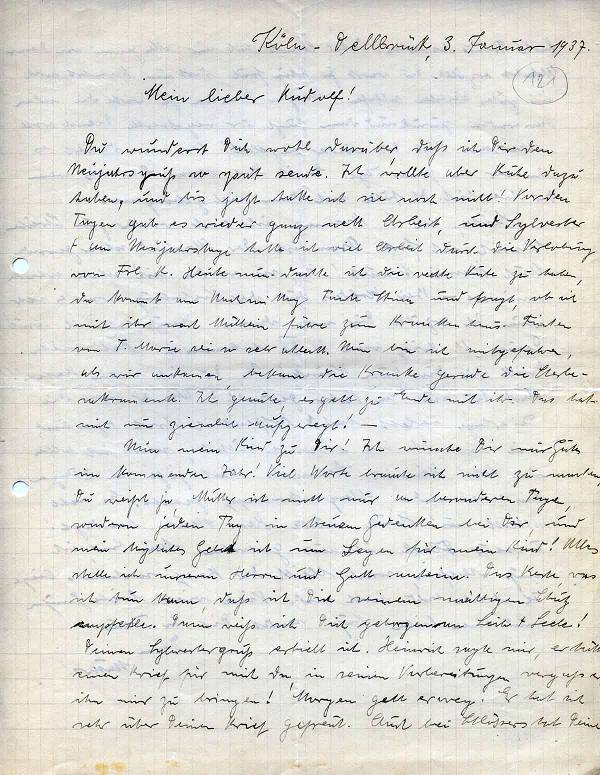 Köln-Dellbrück, 3. Januar 1937.
121
Mein lieber Rudolf!
Du wunderst Dich wohl darüber, daß ich Dir den
Neujahrsgruß so spät sende. Ich wollte aber Ruhe dazu
haben, und bis jetzt hatte ich sie noch nicht! Vor den
Tagen gab es wieder ganz nett Arbeit, und Sylvester
+ am Neujahrstage hatte ich viel Arbeit durch die Verlobung
von Frl. K. Heute nun dachte ich die rechte Ruhe zu haben,
da kommt am Nachmittag Tante und fragt, ob ich
mit ihr nach Mülheim führe zum Krankenhaus.
von T. Marie sei so sehr schlecht. Nun bin ich mitgefahren,
als wir ankamen, bekam die Kranke gerade die Sterbe-
sakramente. Ich glaube, es geht zu Ende mit ihr. Das hat
mich nun ziemlich aufgeregt! —
Nun mein Kind zu Dir! Ich wünsche Dir nur Gutes
im kommenden Jahr! Viel Worte brauche ich nicht zu machen
Du weißt ja, Mutter ist nicht nur an besonderen Tagen,
sondern jeden Tag in treuem Gedenken bei Dir und
mein tägliches Gebet ist um Segen für mein Kind! Alles
stelle ich unserem Herrn und Gott anheim. Das Beste, was
ich tun kann, daß ich Dich seinem mächtigen Schutz
empfehle. Dann weiß ich Dich geborgen an Leib + Seele!
Deinen Sylvestergruß erhielt ich. Heinrich sagte mir, er hätte
einen Brief für mich da in seinen Vorbereitungen vergaß er
ihn mir zu bringen! Morgen geht er weg. Er hat sich
sehr über Deinen Brief gefreut. Auch bei hat Deine